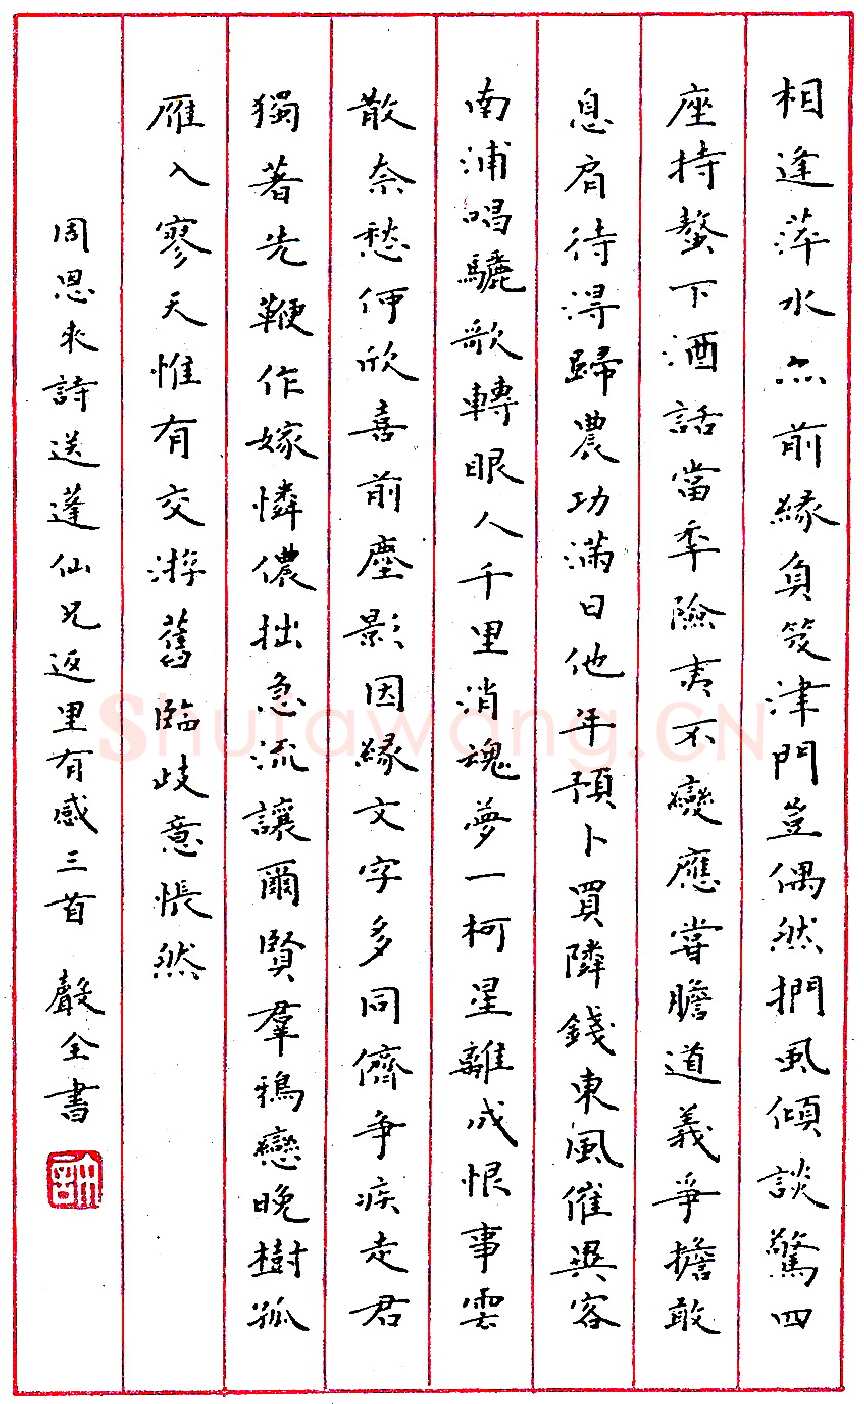 相逢萍水亦前緣負笈津門豈偶然捫虱傾談驚四
座持螯下酒話當秊險夷不變應嘗膽道義爭擔敢
息肩待得歸農功滿日他年預卜買隣錢東風催異客
南浦唱驪歌轉眼人千里消魂夢一柯星離成恨事雲
散奈愁何欣喜前塵影因緣文字多同儕爭疾走君
獨著先鞭作嫁憐儂拙急流讓爾賢羣鴉戀晚樹孤
雁入寥天惟有交游舊臨歧意悵然
周恩來詩送蓬仙兄返里有感三首 聲全書
Shufawang.CN